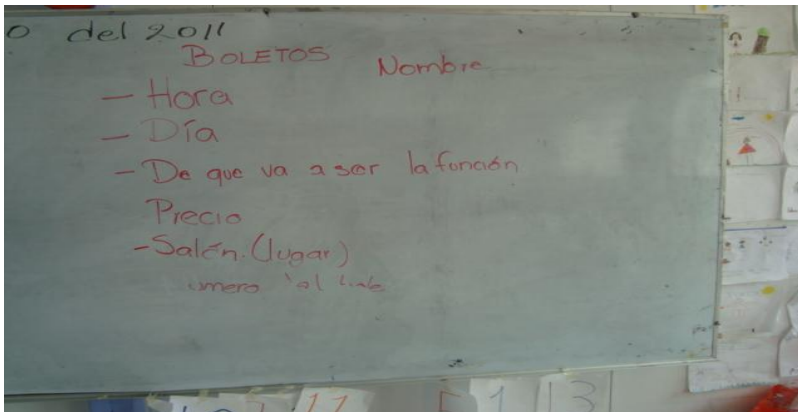 o del 2011
BOLETOS Nombre
- Hora
- Día
- De que va a ser la función
Precio
- Salón. (lugar)
umero
11
1 13